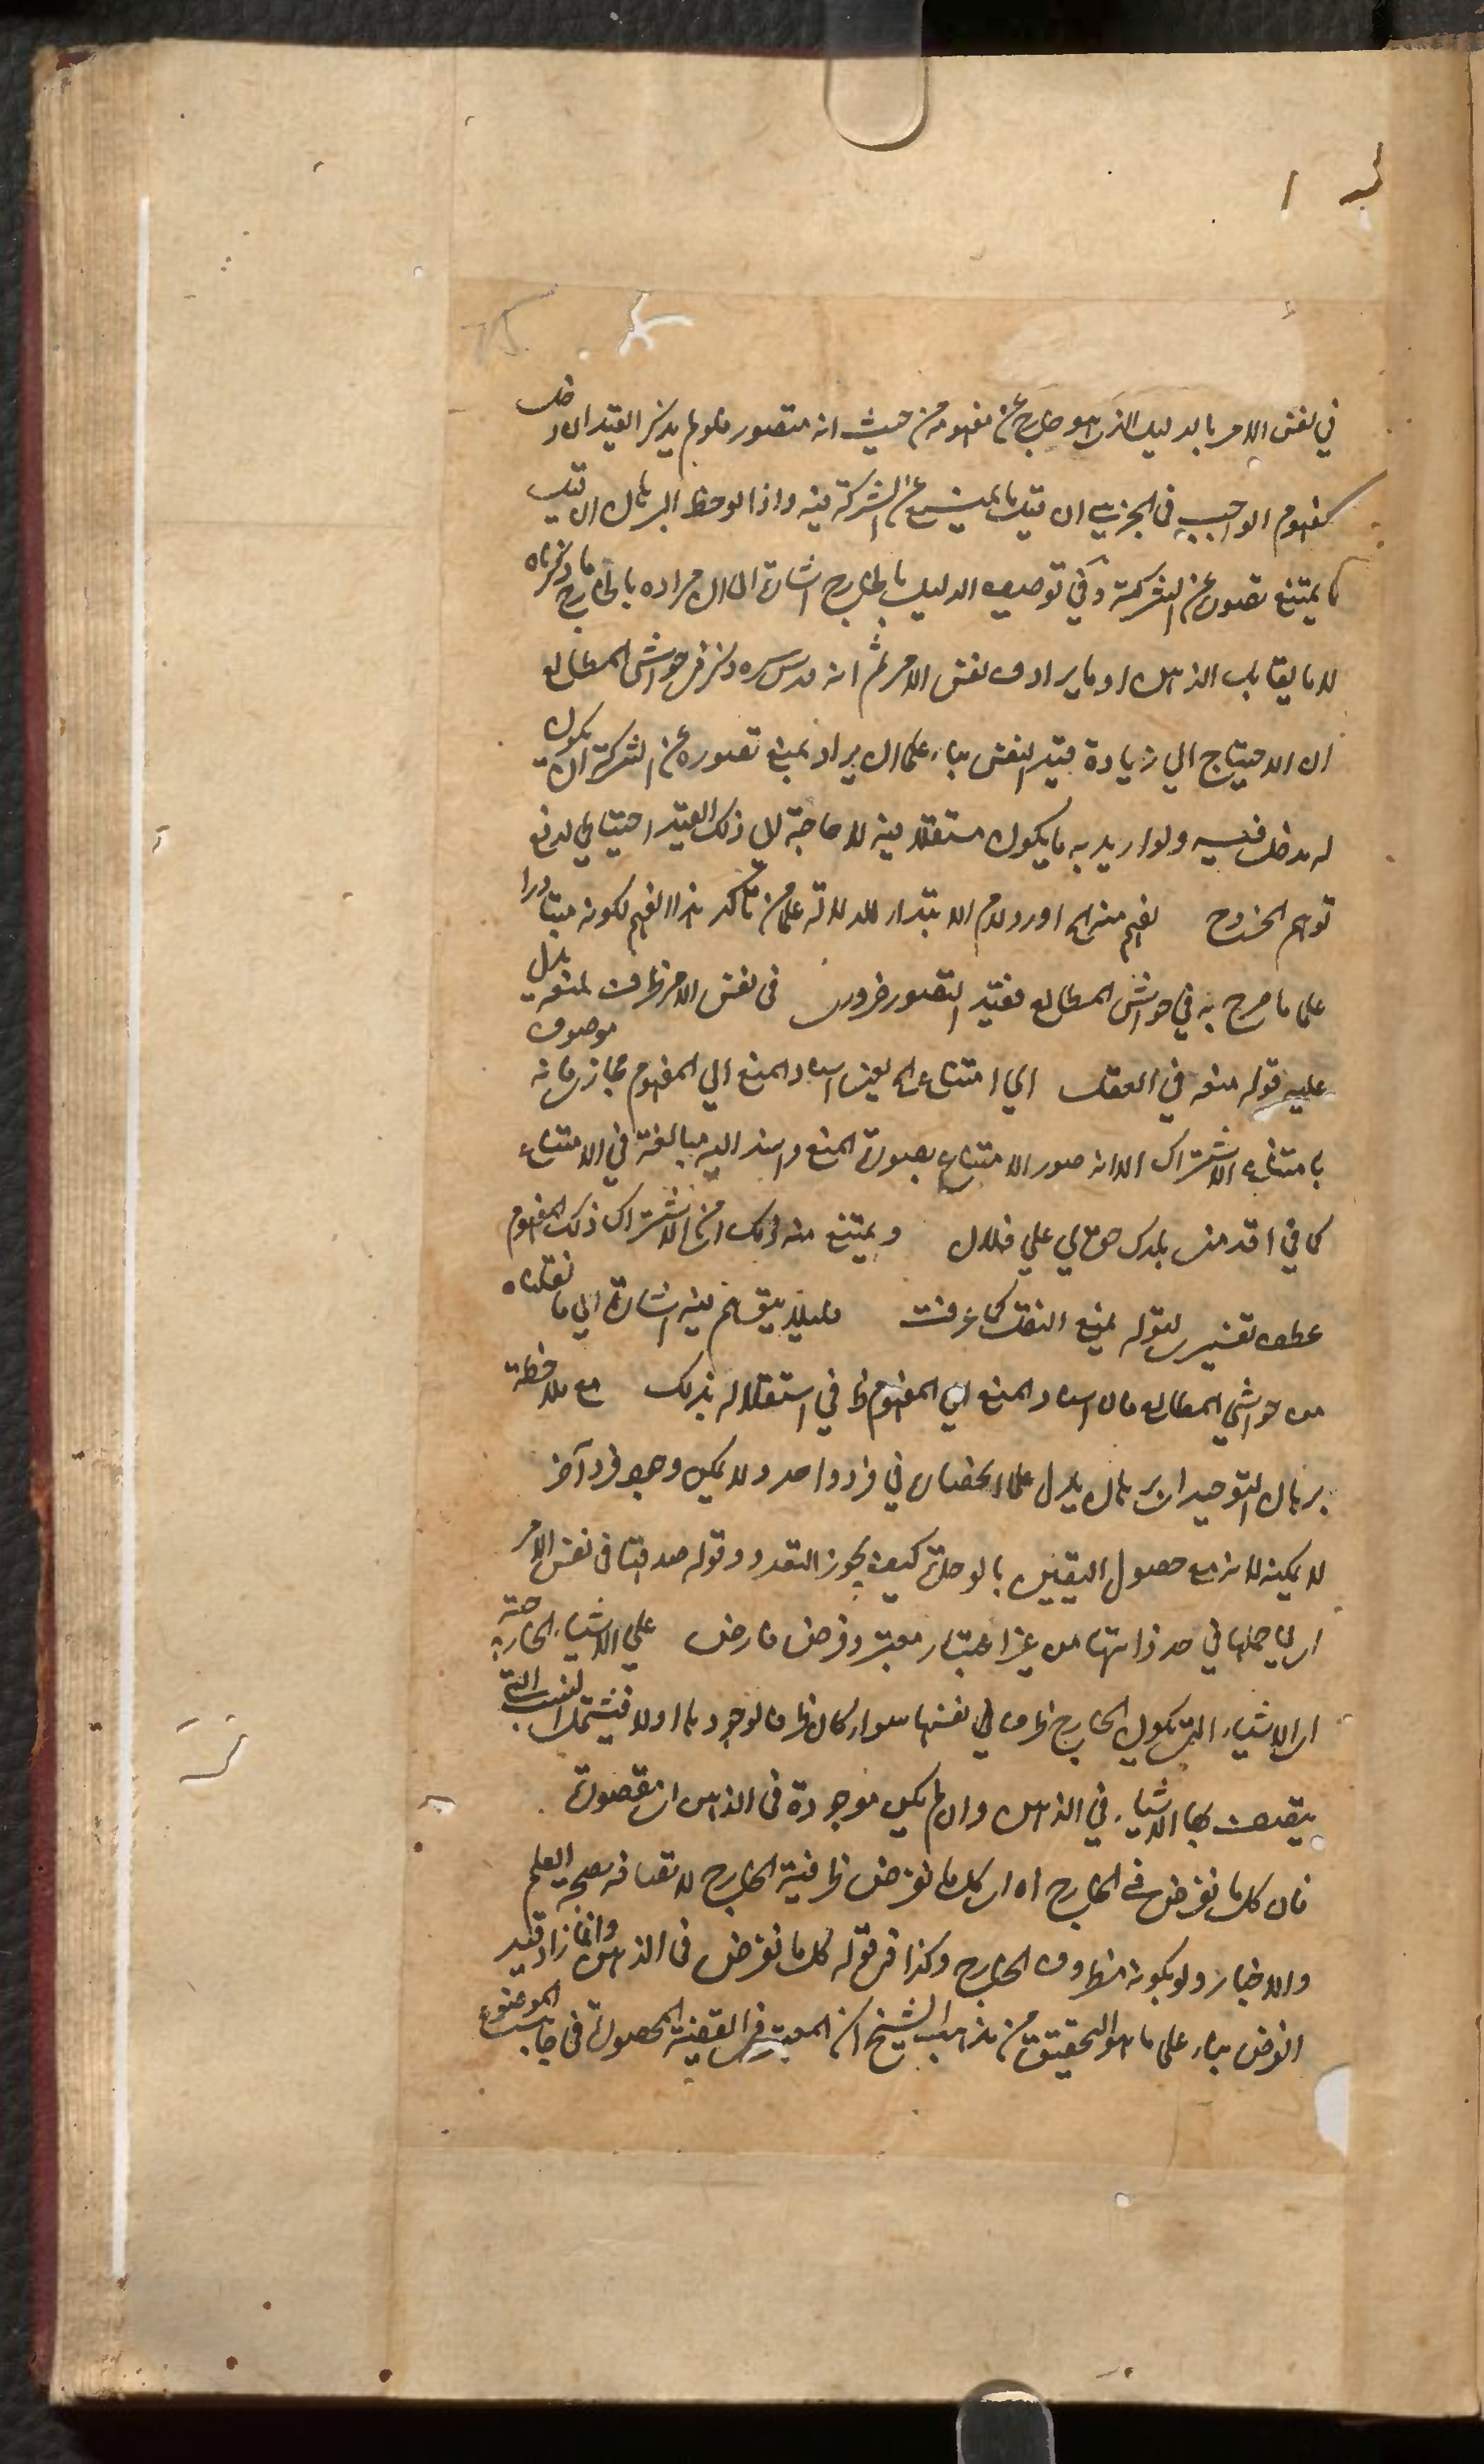 في نفس الامر بالدليل الذي هو خارج عن مفهومه من حيث انه متصور فلو لم يذكر القيد ان دخل
كمفهوم الواجب في الجزئي ان قيل ما يمنع عن الشركة فيه واذا لوحظ البرهان ان قيل
ما يمتنع تصوره عن الشركة وفي توصيف الدليل بالخارج اشارة الى ان مراده بالخارج ما ذكرناه
لا ما يقابل الذهن او ما يرادف نفس الامر ثم انه قدس سره ذكر في حواشي المطالع
ان الاحتياج الي زيادة قيد النفس بناء على ان يراد بمنع تصوره عن الشركة ان يكون
له مدخل فيه ولو اريد به ما يكون مستقلا فيه لا حاجة الى ذلك القيد احتياجا لدفع
توهم الخروج نفهم منه الخ اورد لام الابتداء للدلالة على من تأكد هذا الفهم لكونه متبادرا
على ما صرح به في حواشي المطالع فقيد التصور ضروري في نفس الامر ظرف لمنعه يدل
عليه قوله منعه في العقل اي امتناع الخ يعني اسناد المنع الي المفهوم مجاز فانه موصوف
بامتناع الاشتراك الا انه صور الامتناع بصورة المنع واسند اليه مبالغة في الامتناع
كما في اقدمني بلدك حق لي علي فلان ويمتنع منه ذلك اي الاشتراك ذلك المفهوم
عطف تفسيري لقوله يمنع العقل كما عرفت فليلا يتوهم فيه اشارة الي ما نقلناه
من حواشي المطالع فان اسناد المنع الي المفهوم ظ في استقلاله بذلك مع ملاحظة
برهان التوحيد اي برهان يدل على انحصاره في فرد واحد ولا يمكن وجود فرد آخر
لا يمكنه لانه مع حصول اليقين بالوحدة كيف يجوز التعدد وقوله صدقها في نفس الامر
اي حملها في حد ذاتها من غير اعتبار معتبر وفرض فارض علي الاشياء الخارجية
اي الاشياء التي يكون الخارج ظرفا لنفسها سواء كان ظرفا لوجودها اولا فيشتمل النسب التي
يتصف بها الاشياء في الذهن وان لم يكن موجودة في الذهن اي مقصورة
فان كل ما نفرض في الخارج اه اي كل ما نفرض ظرفية الخارج لاتصافه بصحة العلم
والاخبار ولو بكونه مظروف الخارج وكذا في قوله كل ما نفرض في الذهن وانما زاد قيد
الفرض بناء على ما هو التحقيق من مذهب الشيخ ان المعتبر في القضية المحصورة في جانب الموضوع